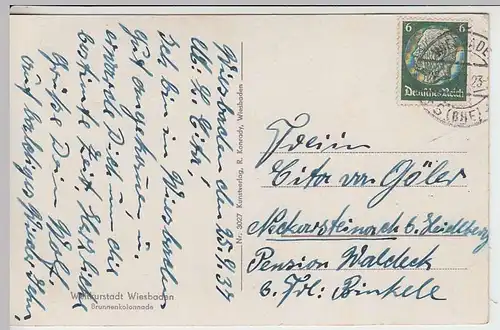 Wiesbaden den 25.9.34
Lb. L. Cita,
Ich bin in Wiesbaden
gut angekommen, u.
erwarte Dich um die
bestimte Zeit, Herzliche
Grüße Dein Wolf.
auf baldiges
6 6
Deutsches Reich
Nr. 3027 Kunstverlag, R. Konrady, Wiesbaden
Weltkurstadt Wiesbaden
Brunnenkolonnade
Cita von Göler
Neckarsteinach b. Heidelberg
Pension Waldeck
b. Frl. Binkele